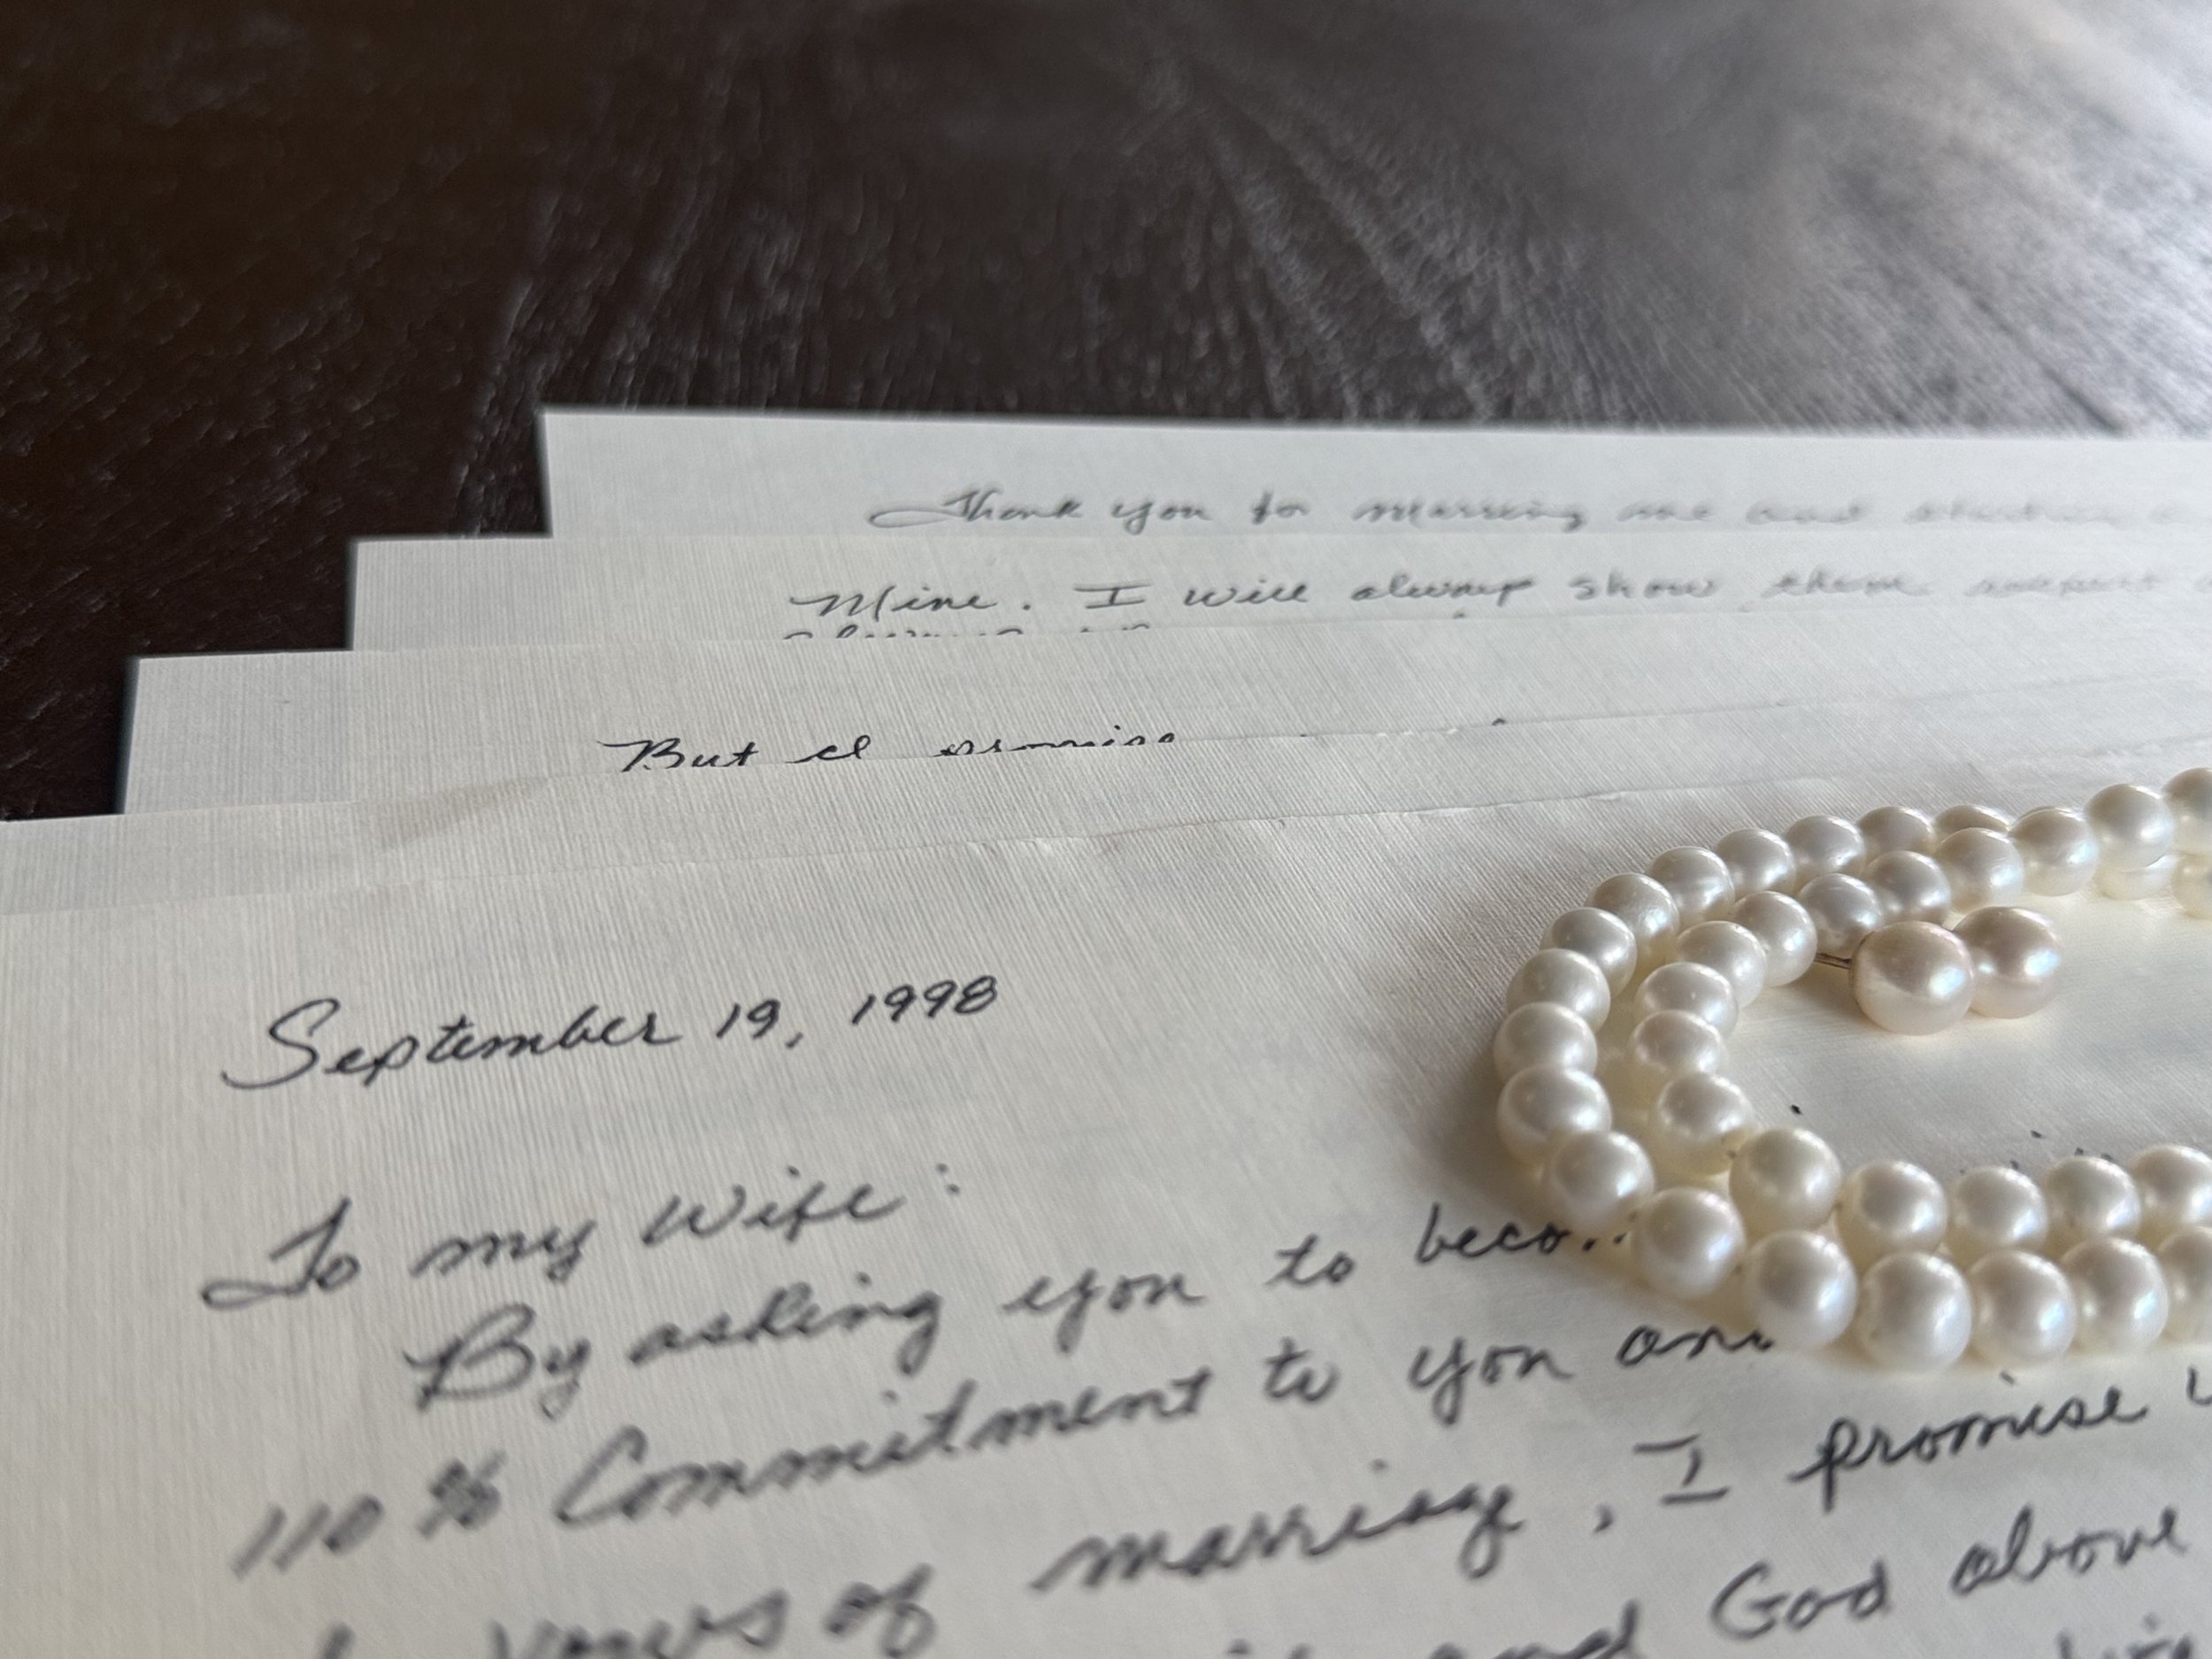 Thank you for marrying me and
Mine. I will always show them respect
But I promise
September 19, 1998
To my Wife:
By asking you to
110% Commitment to you
vows of marriage, I promise
and God above